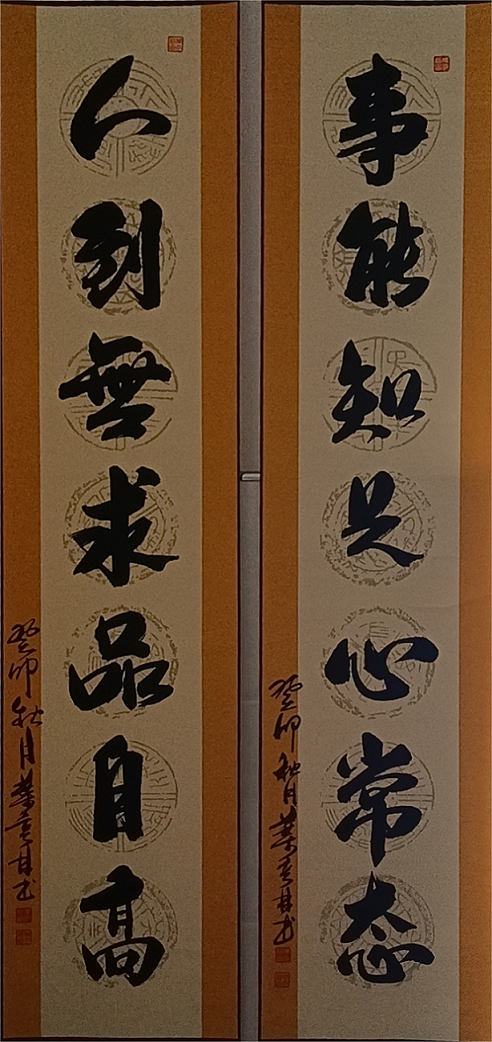 事能知足心常态
癸卯秋月葉
人到無求品自高
癸卯秋月葉